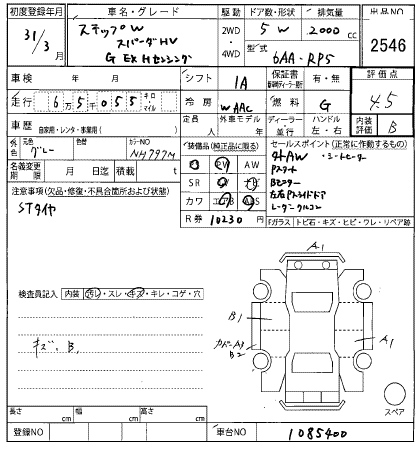 初度登録年月
車名・グレード
駆動
ドア数・形状
排気量
出品NO
31年
3月
ステップW
スパーダHV
G EX Hセンシング
2WD
4WD
5 W
2000cc
型式
6AA-RP5
2546
車検
年 月
シフト
IA
保証書
有・無
評価点
4.5
走行
6万5千055
キロ・マイル
冷房
WAAC
燃料
G
車歴
自家用・レンタ・事業用( )
定員
人
外車モデル
年
ディーラー
並行
ハンドル
左・右
内装
B
外色
グレー
色替
カラーNO
NH797M
装備品(純正品に限る)
セールスポイント(正常に作動するもの)
名義変更期限
月 日迄
積載
t
PS PW AW
SR ナビ TV
カワ エアB ABS
R券 10230円
外AW ・シートヒーター
Pスタート
Bモニター
左右Pスライドドア
レーダークルコン
注意事項(欠品・修復・不具合箇所および状態)
STタイヤ
Fガラス
トビ石・キズ・ヒビ・ワレ・リペア跡
A1
検査員記入
内装
汚レ・スレ・キズ・キレ・コゲ・穴
キズ、B,
B1
B2
A1
A1
スペア
長さ cm
幅 cm
高さ cm
登録NO
車台NO
1085400